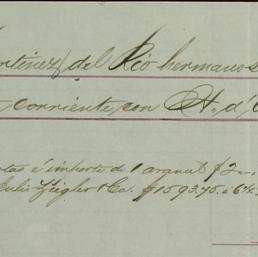 rtinez del Rio hermanos
corriente con H. d'
tas é importe de 1 arancel $2
Julio Ziegler & Ca. $1593.75. á 6%